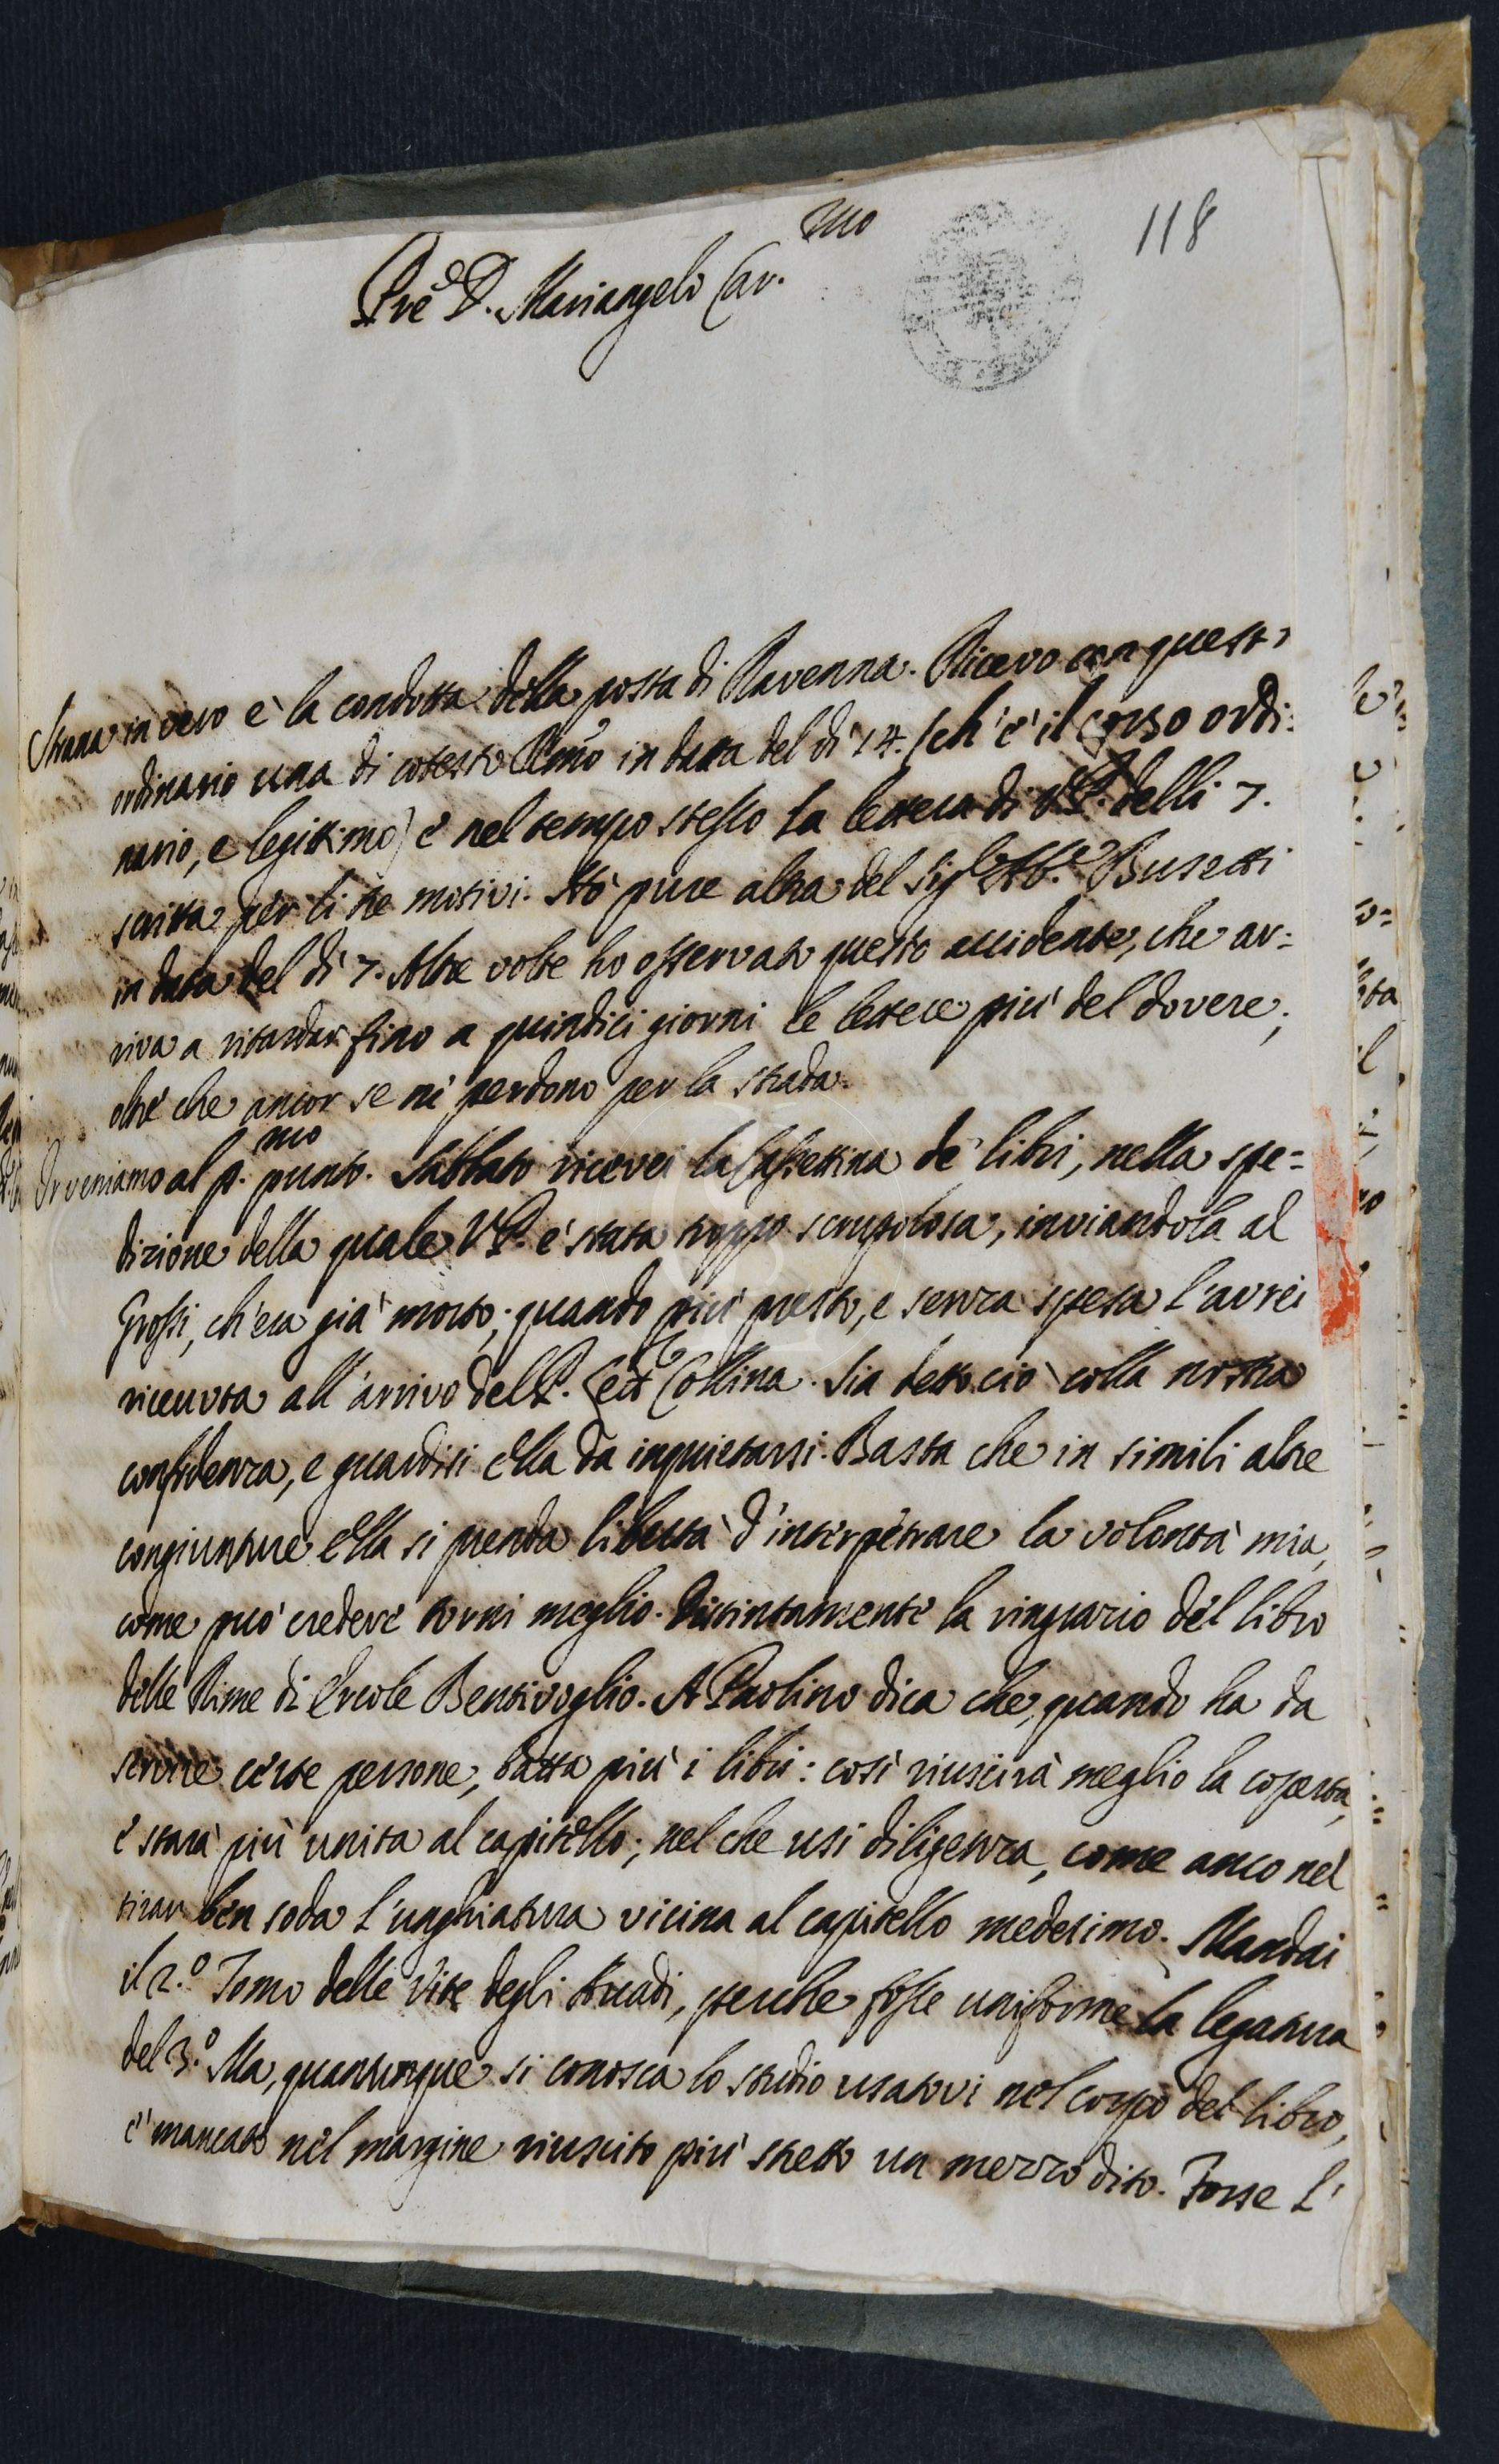 118
Pre D. Mariangelo Car.mo
Strana in vero è la condotta della posta di Ravenna. Ricevo con quest'
ordinario una di cotesto Rmo in data del dì 14. (ch'è il corso ordi:
nario, e legittimo) e nel tempo stesso la lettera di V.P. delli 7.
scritta per li tre motivi. Hò pure altra del Sigr Abe Busetti
in data del dì 7. Altre volte ho osservato questo accidente, che ar=
riva a ritardar fino a quindici giorni le lettere più del dovere;
oltre che ancor se ne perdono per la strada.
Or veniamo al p.mo punto. Sabbato ricevei la Cassettina de' libri, nella spe=
dizione della quale V.P. è stata troppo scrupolosa, inviandola al
Grossi, ch'era già morto; quando più presto, e senza spesa l'avrei
ricevuta all'arrivo del P. Lett. Collina. Sia detto ciò colla nostra
confidenza, e guardisi ella da inquietarsi. Basta che in simili altre
congiunture ella si prenda libertà d'interpetrare la volontà mia,
come può credere torni meglio. Distintamente la ringrazio del libro
delle Rime di Ercole Bentivoglio. A Paolino dica che, quando ha da
servire certe persone, batta più i libri: così riuscirà meglio la coperta,
e starà più unita al capitello; nel che usi diligenza, come anco nel
tirar ben soda l'unghiatura vicina al capitello medesimo. Mandai
il 2.º Tomo delle Vite degli Arcadi, perche fosse uniforme la legatura
del 3.º Ma, quantunque si conosca lo studio usatovi nel corpo del libro,
è mancato nel margine riuscito più stretto un mezzo dito. Forse l'